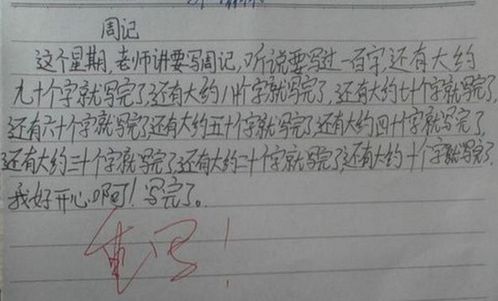 周记
这个星期，老师讲要写周记，听说要写过一百字，还有大约
九十个字就写完了，还有大约八十个字就写完了，还有大约七十个字就写完了，
还有六十个字就写完了还有大约五十个字就写完了还有大约四十个字就写完了，
还有大约三十个字就写完了，还有大约二十个字就写完了，还有大约十个字就写完了
我好开心啊！写完了。
重写！